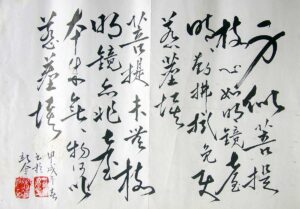 身似菩提
枝心如明鏡臺
時勤拂拭免使
惹塵埃
菩提未若枝
明鏡亦非臺
本來無一物何以
惹塵埃
甲戌春